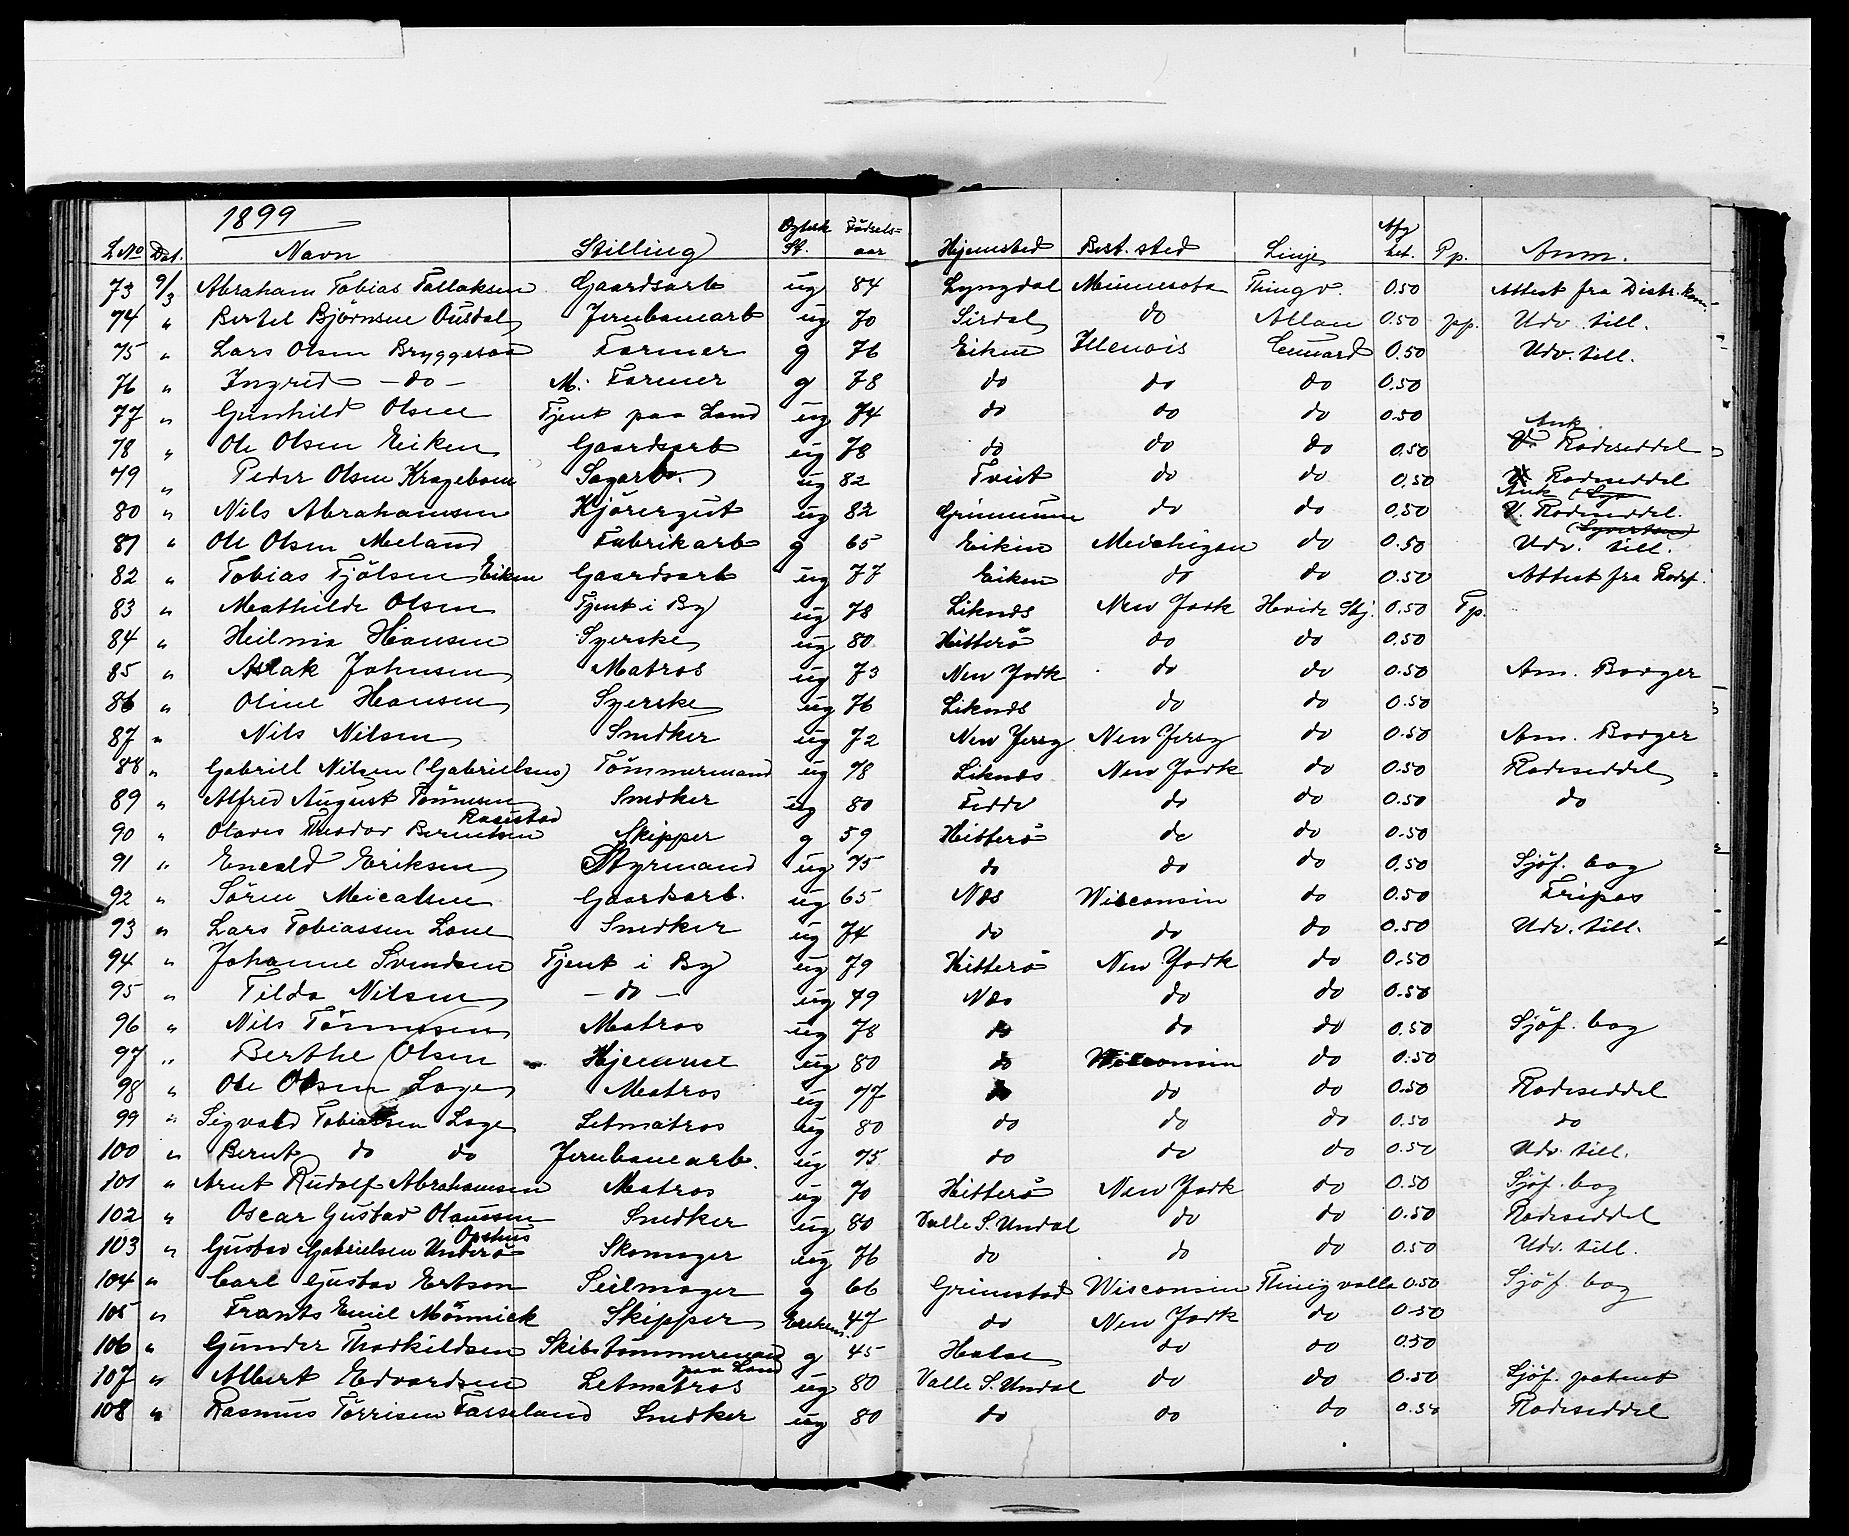 1899
L No Dat. Navn Stilling Ægtesk. St. Fødsels= aar Hjemsted Best. sted Linje Afg. bet. Pp. Anm.
73 9/3 Abraham Tobias Tallaksen Gaardsarb ug 84 Lyngdal Minnesota Thingv. 0.50 Attest fra Distr. Kom.
74 " Bertel Bjørnsen Ousdal Jernbanearb ug 70 Sirdal do Allan 0.50 pp. Udv. till.
75 " Lars Olsen Bryggesaa Farmer g 76 Eiken Illenois Cunard 0.50 Udv. till.
76 " Ingrid – do – M. Farmer g 78 do do do 0.50
77 " Gunhild Olsen Tjent paa Land ug 74 do do do 0.50
78 " Ole Olsen Eiken Gaardsarb ug 78 do do do 0.50 Ank. Rodeseddel
79 " Peder Olsen Kragebom Sagarb. ug 82 Tveit do do 0.50 Rodeseddel
80 " Nils Abrahamsen Kjöregut ug 82 do do 0.50 Ank Rodeseddel.
81 " Ole Olsen Meland Fabrikarb g 65 Eiken Meichigan do 0.50 Udv. till.
82 " Tobias Tjölsen Eiken Gaardsarb ug 77 Eiken do do 0.50 Attest fra Rodef.
83 " Mathilde Olsen Tjent i By ug 78 Liknæs New York Hvide Stj. 0.50 Pp.
84 " Heilma Hansen Syerske ug 80 Hitterö do do 0.50
85 " Aslak Johnsen Matros ug 73 New York do do 0.50 Am. Borger
86 " Oline Hansen Syerske ug 76 Liknæs do do 0.50
87 " Nils Nilsen Snedker ug 72 New Jersy New Jersy do 0.50 Am. Borger
88 " Gabriel Nilsen (Gabrielsens) Tömmermand ug 78 Liknæs New York do 0.50 Rodeseddel
89 " Alfred August Tönnesen Snedker ug 80 Fedde do do 0.50 do
90 " Olaves Theodor Berentsen Rasestad Skipper g 59 Hitterö do do 0.50
91 " Enevald Eriksen Styrmand ug 75 do do do 0.50 Sjöf. bog
92 " Sören Meicalsen Gaardsarb. ug 65 Næs Wisconsin do 0.50 Fripas
93 " Lars Tobiassen Lone Snedker ug 74 do do do 0.50 Udv. till.
94 " Johanne Svendsen Tjent i By ug 79 Hitterö New York do 0.50
95 " Tilda Nilsen – do – ug 79 Næs do do 0.50
96 " Nils Tönnesen Matros ug 78 do do do 0.50 Sjöf. bog
97 " Berthe Olsen Hjemme ug 80 do Wisconsin do 0.50
98 " Ole Olsen Loge Matros ug 77 do do do 0.50 Rodeseddel
99 " Sigvald Tobiassen Loge Letmatros ug 80 do do do 0.50 do
100 " Bernt do do Jernbanearb. ug 75 do do do 0.50 Udv. till.
101 " Arnt Rudolf Abrahamsen Matros ug 70 Hitterö New York do 0.50 Sjöf. bog
102 " Oscar Gustav Olaussen Snedker ug 80 Valle S. Undal do do 0.50 Rodeseddel
103 " Gustav Gabrielsen Underö Skomager ug 76 do do do 0.50 Udv. till.
104 " Carl Gustav Ertson Seilmager g 66 Grimstad Wisconsin Thingvalle 0.50 Sjöf. bog
105 " Frants Emil Mönnick Skipper Enkem. 47 do New York do 0.50
106 " Gunder Thorkildsen Skibstömmermand paa Land g 45 Halse do do 0.50
107 " Albert Edvardsen Letmatros ug 80 Valle S. Undal do do 0.50 Sjöf. patent
108 " Rasmus Törrisen Fasseland Snedker ug 80 do do do 0.50 Rodeseddel